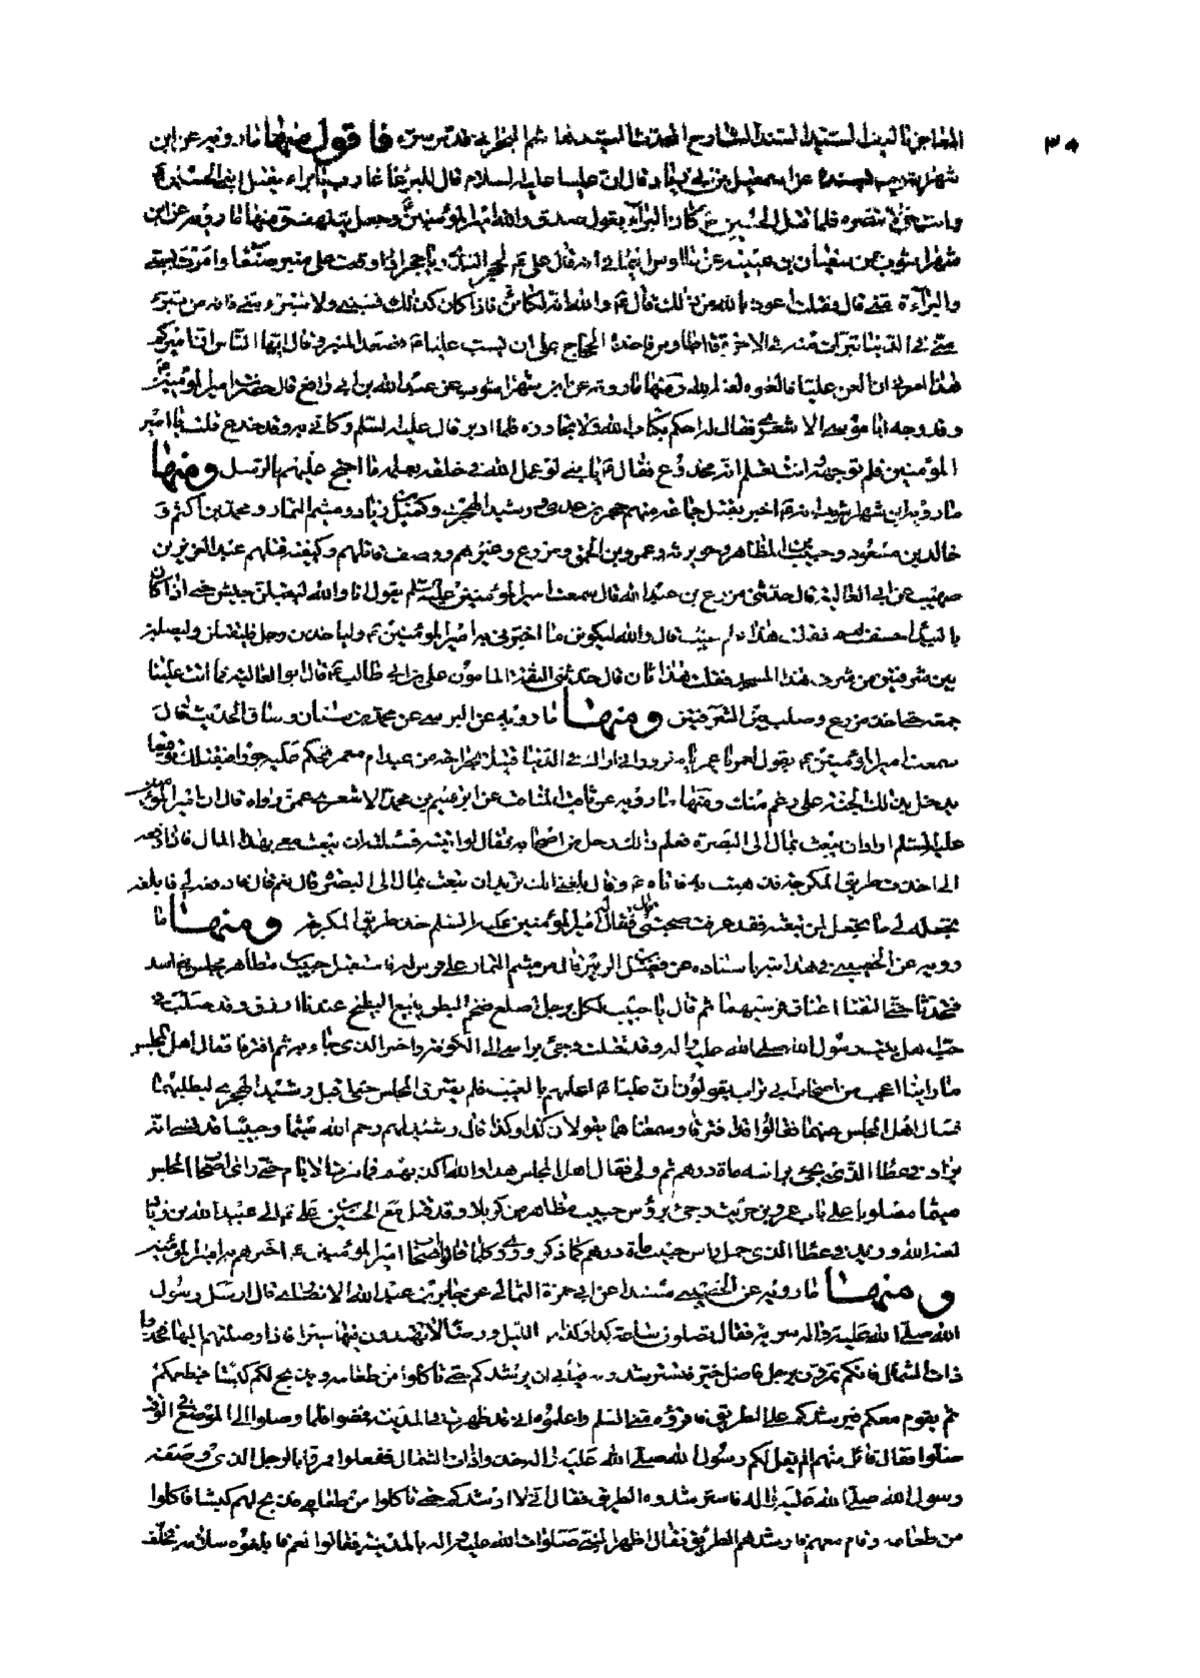 ٣٠
المعاجز تاليف السيد السند الشارح المحدث السيد هاشم البحراني قدس سره فاقول منها ما رويه عن ابن
عن اسمعيل بن زياد قال ان عليا عليه السلام قال للبراء بن عازب يا براء يقتل ابني الحسين ع
وانت حي لا تنصره فلما قتل الحسين ع كان البراء يقول صدق والله امير المؤمنين ع وجعل يتلهف ومنها ما رويه عن ابن
شهراشوب عن سفيان بن عيينه عن طاوس اليماني انه قال علي ع لحجر البدري يا حجر اذا وقفت على منبر صنعا وامرت بسبي
والبراءة مني قال فقلت اعوذ بالله من ذلك قال ع والله انه لكائن فاذا كان كذلك فسبني ولا تتبرء مني فانه من تبرء
مني في الدنيا تبرات منه في الاخرة قال طاوس فاخذه الحجاج على ان يسب عليا ع فصعد المنبر وقال ايها الناس ان اميركم
هذا امرني ان العن عليا فالعنوه لعنه الله ومنها ما رويه عن ابن شهراشوب عن عبد الله بن ابي رافع قال حضرت امير المؤمنين ع
وقد وجه ابا موسى الاشعري فقال له احكم بكتاب الله ولا تجاوزه فلما ادبر قال عليه السلم وكاني به وقد خدع قلت يا امير
المؤمنين فلم توجهه وانت تعلم انه مخدوع فقال ع يا بني لو عمل الله في خلقه بعلمه ما احتج عليهم بالرسل ومنها
ما رويه ابن شهراشوب انه ع اخبر بقتل جماعة منهم حجر بن عدي ورشيد الهجري وكميل بن زياد وميثم التمار ومحمد بن اكثم و
خالد بن مسعود وحبيب بن المظاهر وجويرية وعمرو بن الحمق ومزرع وغيرهم ووصف قاتلهم وكيفية قتلهم عبد العزيز بن
صهيب عن ابي العالية قال حدثني مزرع بن عبد الله قال سمعت امير المؤمنين عليه السلم يقول اما والله ليقبلن جيش حتى اذا كان
بالبيدا خسف بهم فقلت هذا غيب قال والله ليكونن ما اخبرني به امير المؤمنين ع ولياخذن رجل فليقتلن وليصلبن
بين شرفتين من شرف هذا المسجد فقلت هذا ثان قال حدثني الثقة المامون علي بن ابي طالب ع قال ابو العالية فما اتت علينا
جمعة حتى اخذ مزرع وصلب بين الشرفتين ومنها ما رويه عن البرسي عن محمد بن سنان وساق الحديث قال
سمعت امير المؤمنين ع يقول لعمر يا عمر
يدخل بذلك الجنة على رغم منك ومنها ما رويه عن ثاقب المناقب عن ابرهيم بن محمد الاشعري عمن رواه قال ان امير المؤمنين
عليه السلم اراد ان يبعث بمال الى البصرة فعلم ذلك رجل من اصحابه فقال لو اتيته فسئلته ان يبعث معي بهذا المال فاذا دفعه
الي اخذت طريق المكرجة فذهبت به فاتاه ع وقال بلغني انك تريد ان تبعث بمال الى البصرة قال نعم قال فادفعه الي فابلغه
تجعل لي ما تجعل لمن تبعثه فقد عرفت صحبتي فقال له امير المؤمنين عليه السلم خذ طريق المكرجة ومنها ما
رويه عن الحضيني في هدايته باسناده عن فضيل بن الزبير قال مر ميثم التمار على فرس له فاستقبل حبيب بن مظاهر مجلس بني اسد
فتحدثا حتى التقتا اعناق فرسيهما ثم قال يا حبيب لكاني برجل اصلع ضخم البطن يبيع البطيخ عند دار الرزق وقد صلب في
حب اهل بيت رسول الله صلى الله عليه واله وقد قتلت وجيئ براسه الى الكوفة واخر الذي جاء به ثم افترقا فقال اهل المجلس
ما راينا اعجب من اصحاب ابي تراب يقولون ان عليا ع اعلمهم بالغيب فلم يفترق المجلس حتى اقبل رشيد الهجري ليطلبهما
فسال اهل المجلس عنهما فقالوا قد افترقا وسمعناهما يقولان كذا وكذا قال رشيد لهم رحم الله ميثما وحبيبا قد نسي انه
يزاد في عطا الذي يجئ براسه ماة درهم ثم ولى فقال اهل المجلس هذا والله اكذبهم فما مرت الايام حتى راى اصحاب المجلس
ميثما مصلوبا على باب عمرو بن حريث وجئ برؤس حبيب بن مظاهر من كربلا وقد قتل مع الحسين بن علي ع الى عبيد الله بن زياد
لعنه الله وزيد في عطا الذي حمل راس حبيب ماة درهم كما ذكر وروي كلما قال اصحاب امير المؤمنين ع اخبرهم به امير المؤمنين
ومنها ما رويه عن الحضيني مسندا عن ابي حمزة الثمالي عن جابر بن عبد الله الانصاري قال ارسل رسول
الله صلى الله عليه واله سرية فقال تصلون ساعة كذا وكذا من الليل ارضا لا تهتدون فيها سيرا فاذا وصلتم اليها فخذوا
ذات الشمال فانكم تمرون برجل فاضل خير فتسترشدونه فيابى ان يرشدكم حتى تاكلوا من طعامه ويذبح لكم كبشا فيطعمكم
ثم يقوم معكم فيرشدكم على الطريق فاقرؤه مني السلم واعلموه اني قد ظهرت في المدينة فمضوا فلما وصلوا الى الموضع في الوقت
ضلوا فقال قائل منهم الم يقل لكم رسول الله صلى الله عليه واله خذوا ذات الشمال ففعلوا فمروا بالرجل الذي وصفه
رسول الله صلى الله عليه واله فاسترشدوه الطريق فقال اني لا ارشدكم حتى تاكلوا من طعامي فذبح لهم كبشا فاكلوا
من طعامه وقام معهم فارشدهم الطريق فقال اظهر النبي صلوات الله عليه واله بالمدينة فقالوا نعم فابلغوه سلامه فخلف